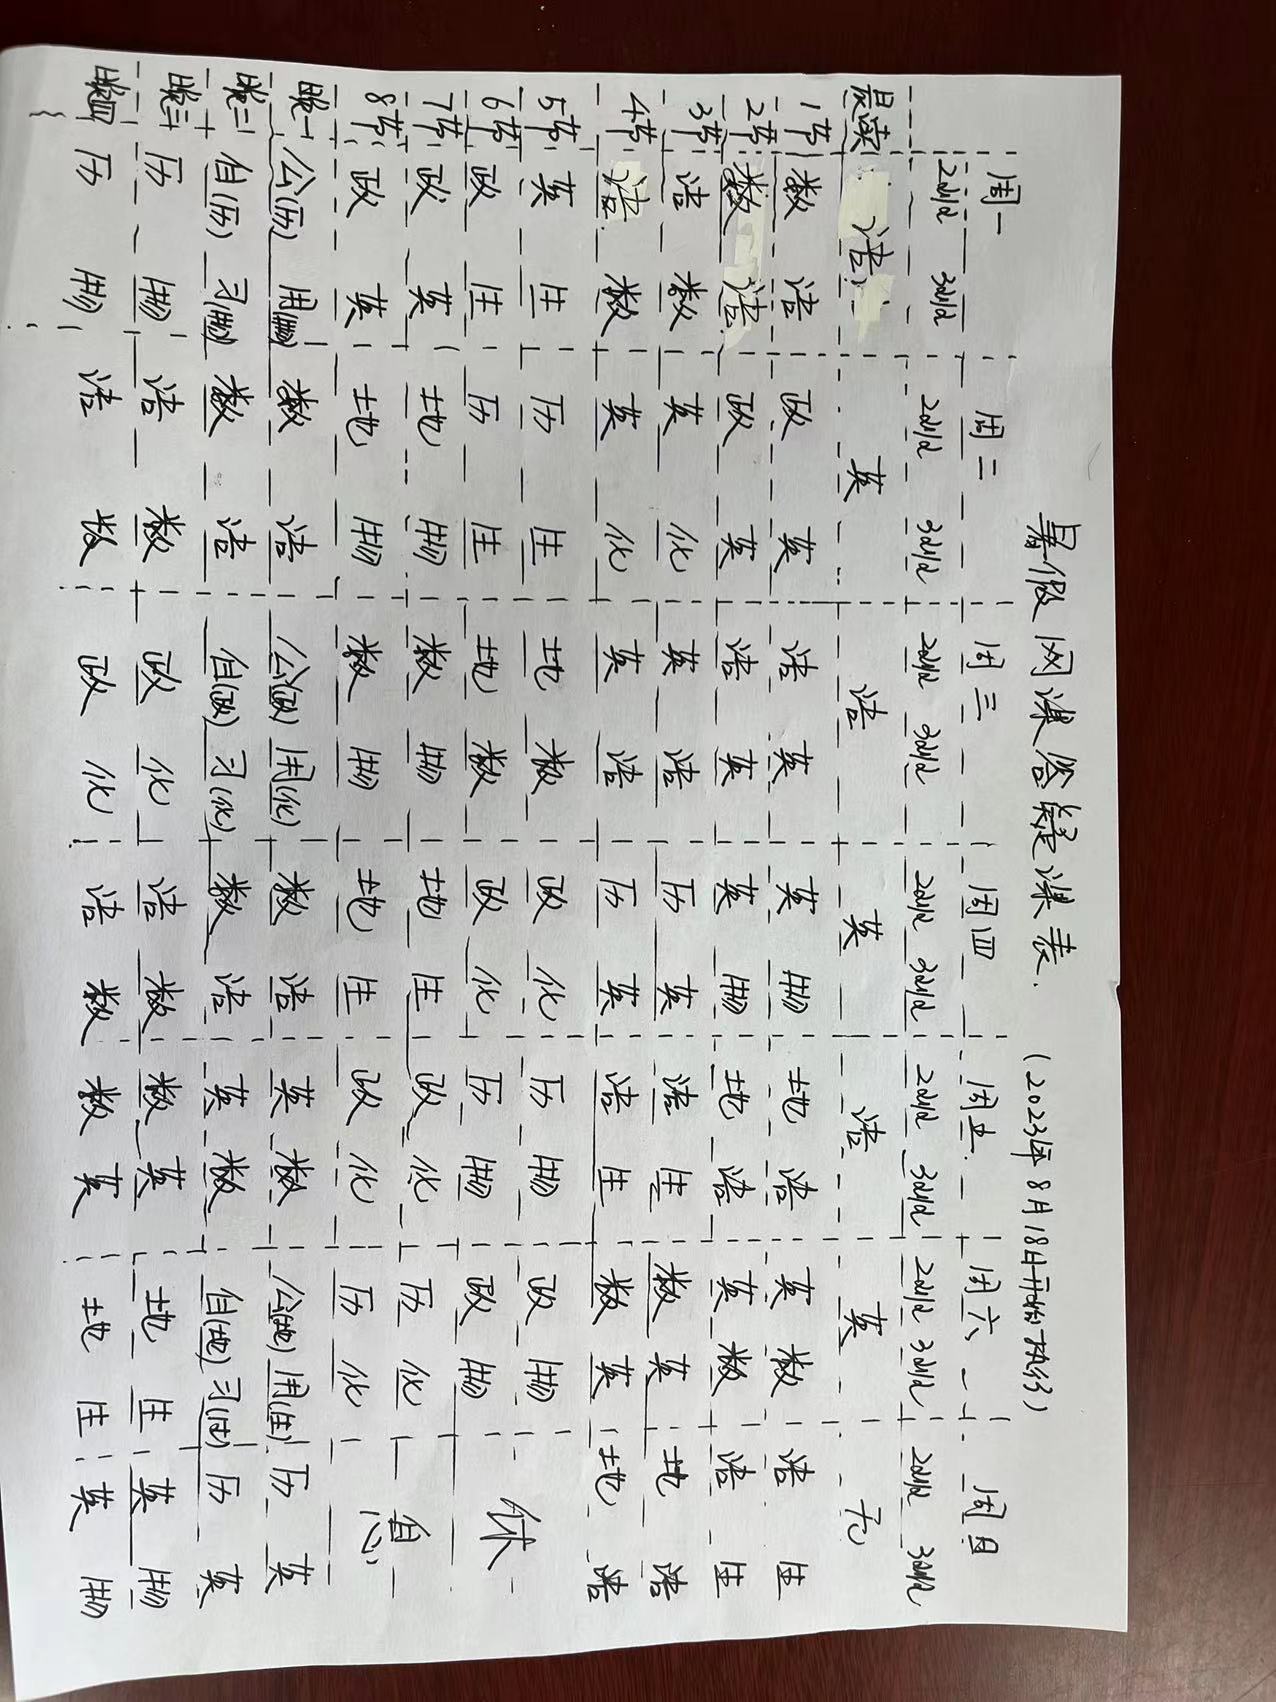 暑假网课答疑课表.（2023年8月18日开始执行）
周一 周二 周三 周四 周五 周六 周日
晨读 语 英 语 英 语 英 无
1节 数 语 政 英 语 英 英 物 地 语 英 数 语 生
2节 数 语 政 英 语 英 英 物 地 语 英 数 语 生
3节 语 数 英 化 英 语 历 英 语 生 数 英 地 语
4节 语 数 英 化 英 语 历 英 语 生 数 英 地 语
5节 英 生 历 生 地 数 政 化 历 物 政 物 休
6节 政 生 历 生 地 数 政 化 历 物 政 物
7节 政 英 地 物 数 物 地 生 政 化 历 化 息
8节 政 英 地 物 数 物 地 生 政 化 历 化
晚一 公(历) 用(物) 数 语 公(政) 用(化) 数 语 英 数 公(地) 用(生) 历 英
晚二 自(历) 习(物) 数 语 自(政) 习(化) 数 语 英 数 自(地) 习(生) 历 英
晚三 历 物 语 数 政 化 语 数 数 英 地 生 英 物
晚四 历 物 语 数 政 化 语 数 数 英 地 生 英 物